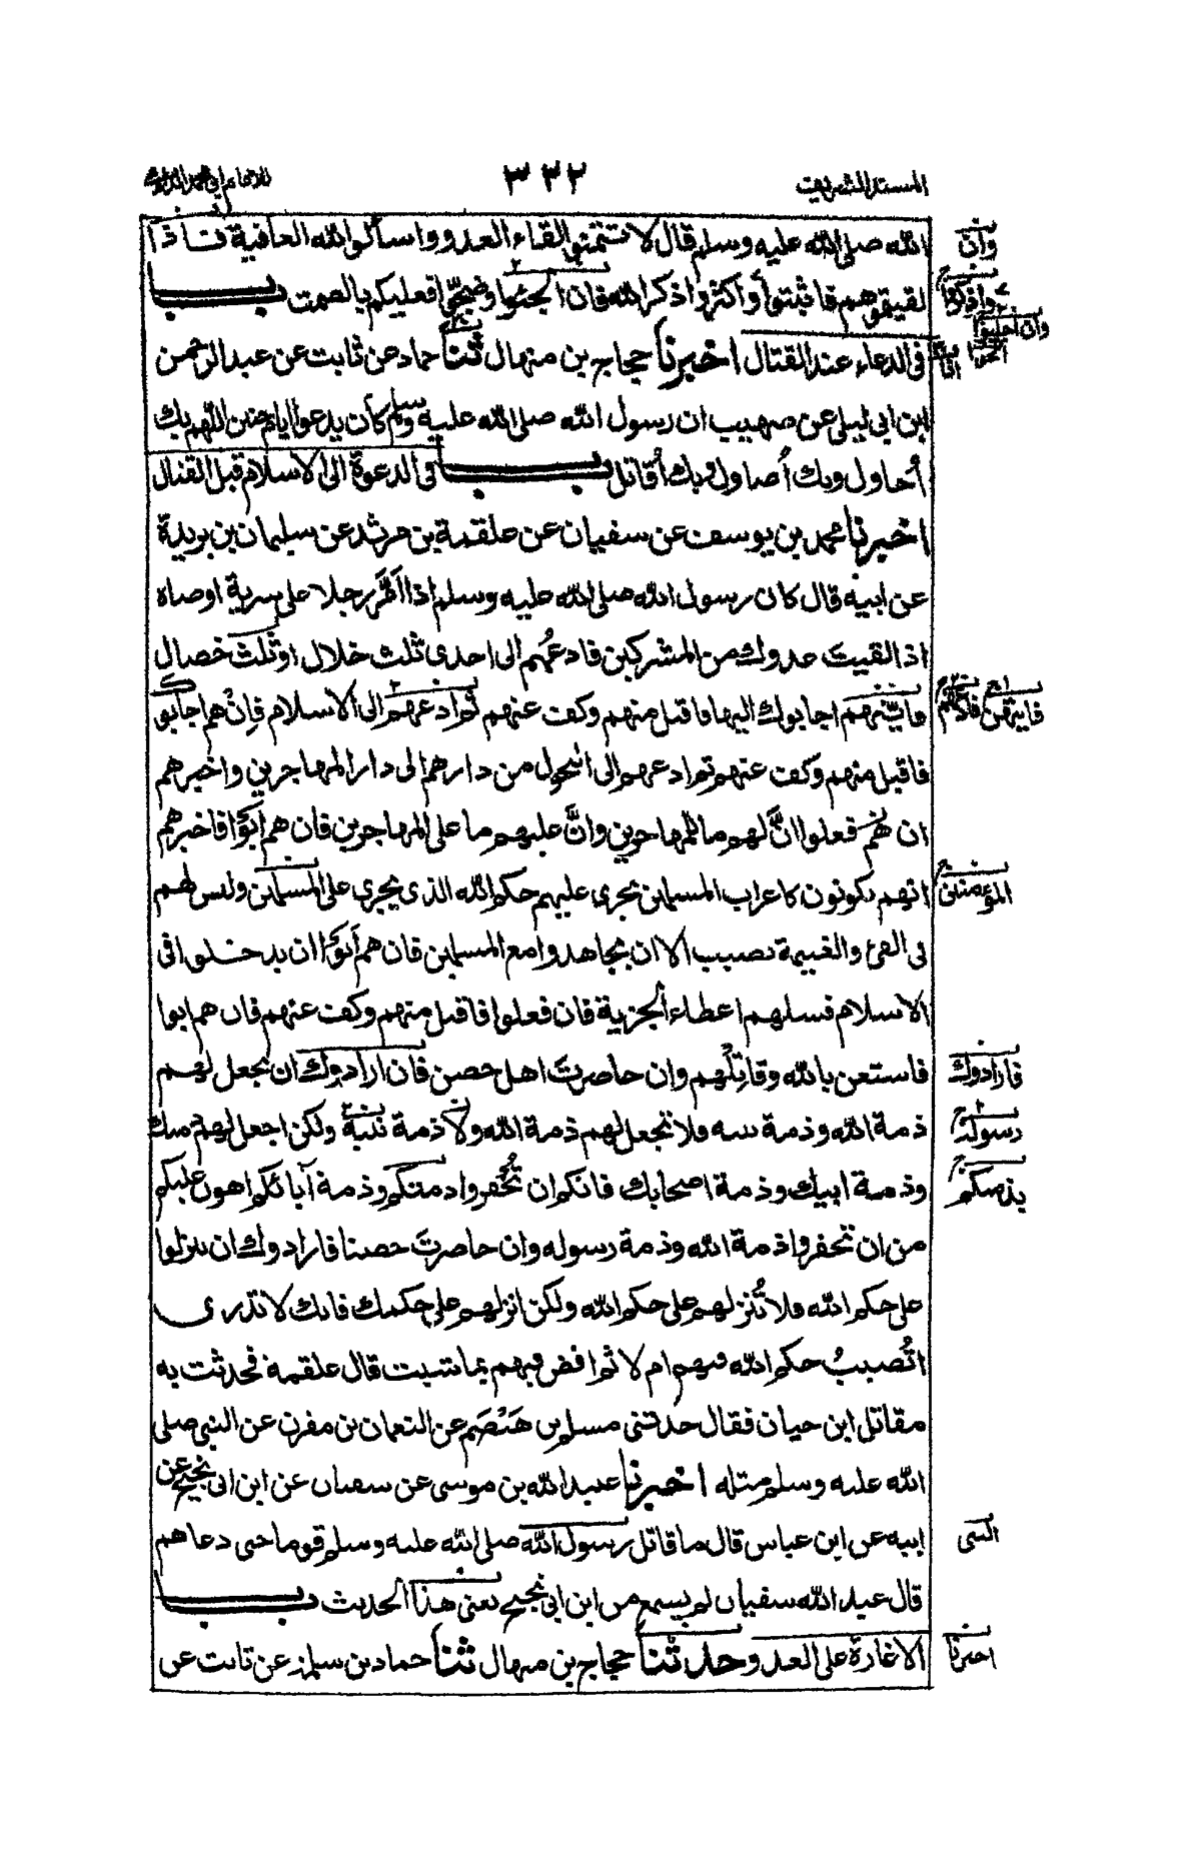 المسند الشريف
٣٣٢
للامام ابي محمد الدارمي
الله صلى الله عليه وسلم قال لا تتمنوا لقاء العدو واسألوا الله العافية فاذا
لقيتموهم فاثبتوا واكثروا ذكر الله فان اجلبوا وضجوا فعليكم بالصمت باب
في الدعاء عند القتال اخبرنا حجاج بن منهال ثنا حماد عن ثابت عن عبد الرحمن
ابن ابي ليلى عن صهيب ان رسول الله صلى الله عليه وسلم كان يدعو ايام حنين اللهم بك
أحاول وبك أصاول وبك أقاتل باب في الدعوة الى الاسلام قبل القتال
اخبرنا محمد بن يوسف عن سفيان عن علقمة بن مرثد عن سليمان بن بريدة
عن ابيه قال كان رسول الله صلى الله عليه وسلم اذا أمّر رجلا على سرية اوصاه
اذا لقيت عدوك من المشركين فادعهم الى احدى ثلث خلال او ثلث خصال
فايتهم اجابوك اليها فاقبل منهم وكف عنهم ثم ادعهم الى الاسلام فإن هم اجابوك
فاقبل منهم وكف عنهم ثم ادعهم الى التحول من دارهم الى دار المهاجرين واخبرهم
ان هم فعلوا انّ لهم ما للمهاجرين وانّ عليهم ما على المهاجرين فان هم أبوا فاخبرهم
انهم يكونون كاعراب المسلمين يجري عليهم حكم الله الذي يجري على المسلمين وليس لهم
في الفئ والغنيمة نصيب الا ان يجاهدوا مع المسلمين فان هم أبوا ان يدخلوا في
الاسلام فسلهم اعطاء الجزية فان فعلوا فاقبل منهم وكف عنهم فان هم ابوا
فاستعن بالله وقاتلهم وان حاصرت اهل حصن فان ارادوك ان تجعل لهم
ذمة الله وذمة نبيه فلا تجعل لهم ذمة الله ولا ذمة نبيه ولكن اجعل لهم ذمتك
وذمة ابيك وذمة اصحابك فانكم ان تُخفروا ذمتكم وذمة آبائكم اهون عليكم
من ان تخفروا ذمة الله وذمة رسوله وان حاصرت حصنا فارادوك ان ينزلوا
على حكم الله فلا تُنزلهم على حكم الله ولكن انزلهم على حكمك فانك لا تدري
اتُصيبُ حكم الله فيهم ام لا ثم اقض فيهم بما شئت قال علقمة فحدثت به
مقاتل ابن حيان فقال حدثني مسلم بن هَيْصَم عن النعمان بن مقرن عن النبي صلى
الله عليه وسلم مثله اخبرنا عبيد الله بن موسى عن سفيان عن ابن ابي نجيح عن
ابيه عن ابن عباس قال ما قاتل رسول الله صلى الله عليه وسلم قوما حتى دعاهم
قال عبد الله سفيان لم يسمع من ابن ابي نجيح يعني هذا الحديث باب
الاغارة على العدو حدثنا حجاج بن منهال ثنا حماد بن سلمة عن ثابت عن
وان
واذكروا
وان اجلبوا
فايتهن
فادعهم
المؤمنين
فارادوك
رسوله
بذمتكم
النبي
اخبرنا